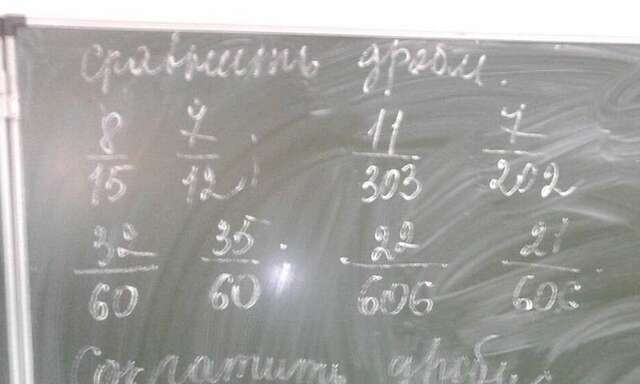 сравнить дроби.
8/15 7/12; 11/303 7/202
32/60 35/60; 22/606 21/606
Сократить дробь